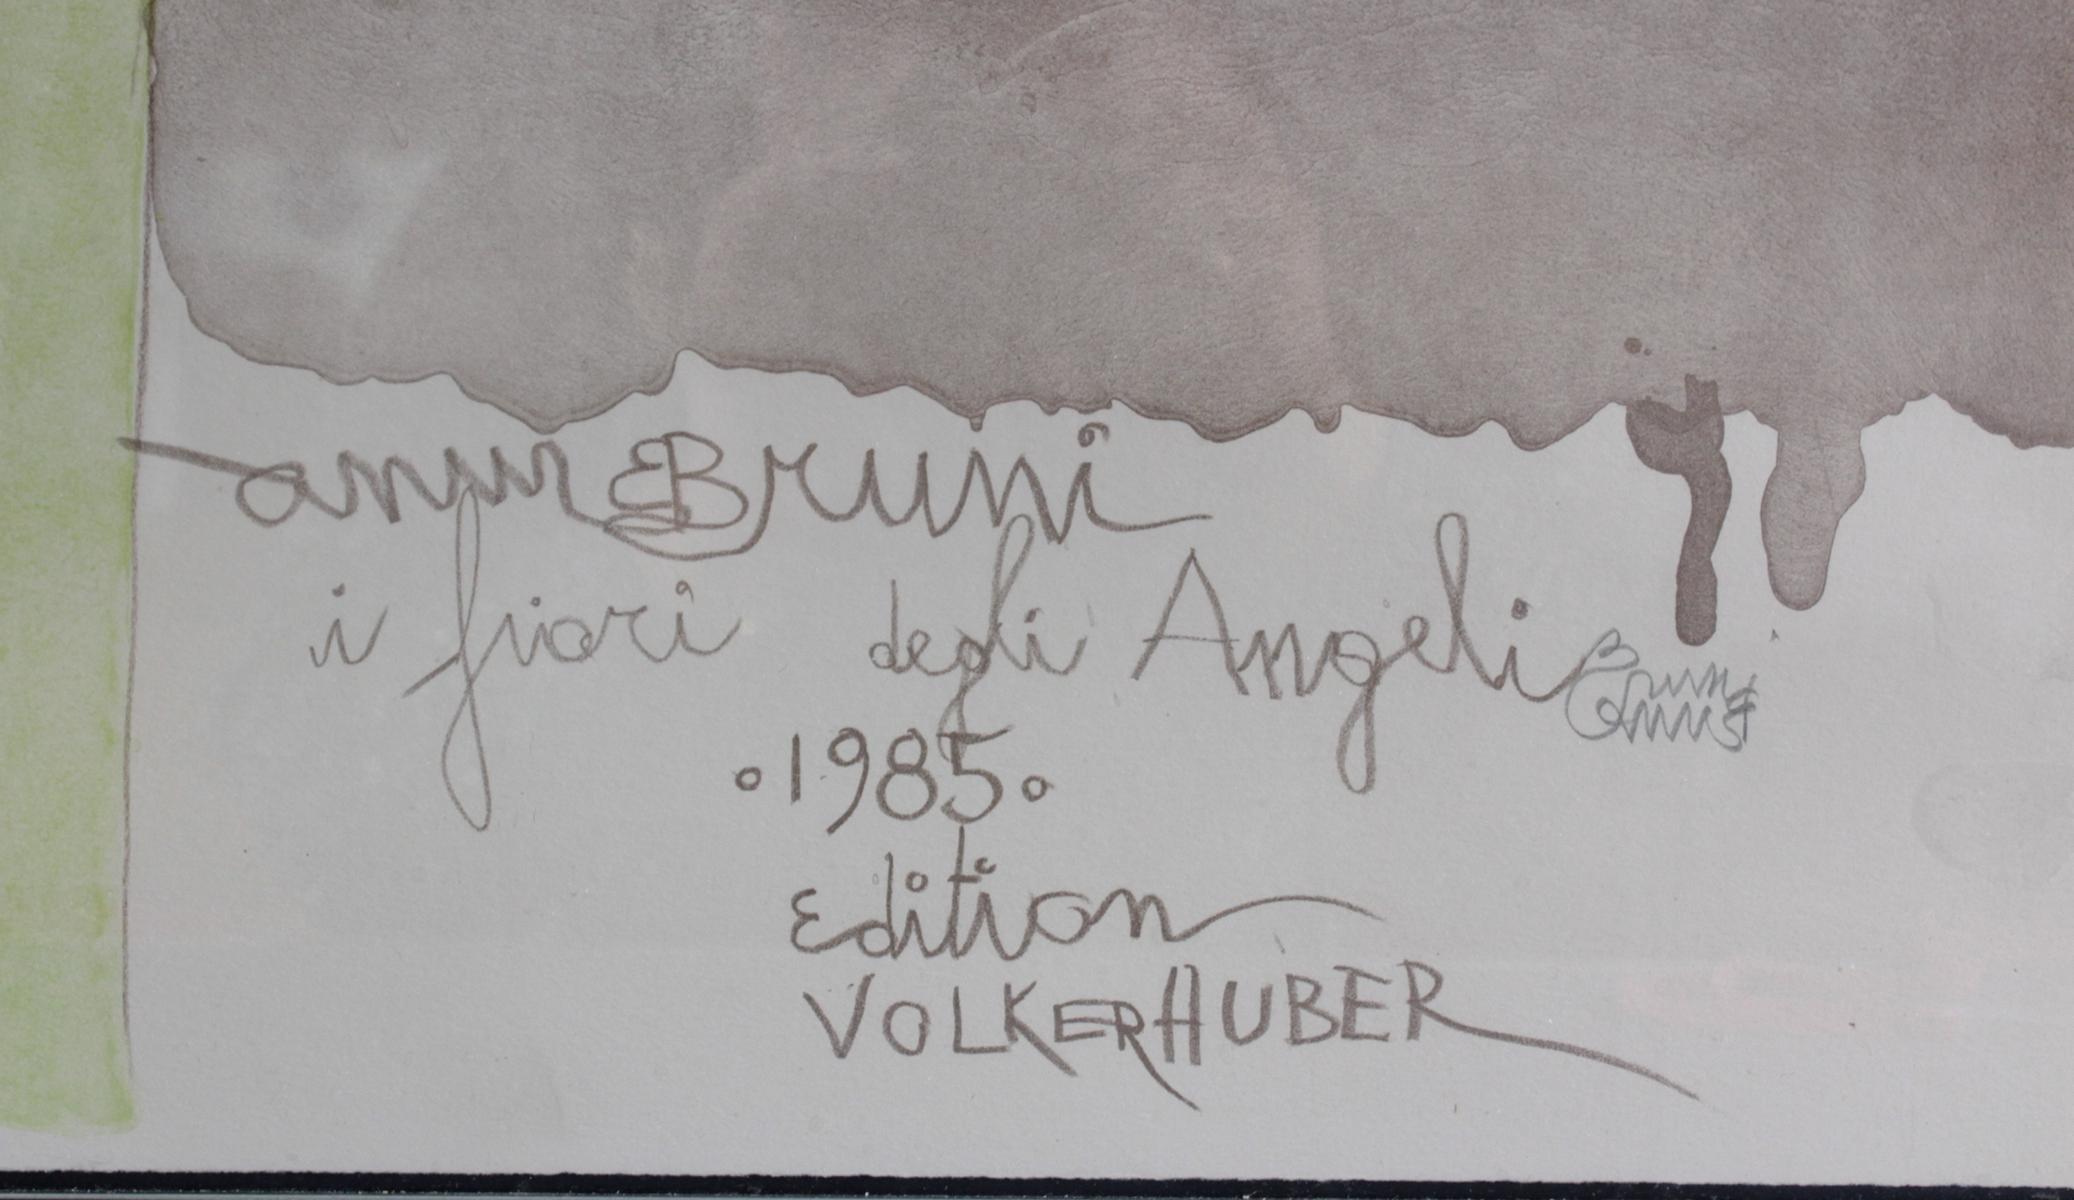 Bruni
i fiori degli Angeli
°1985°
Edition
VOLKER HUBER